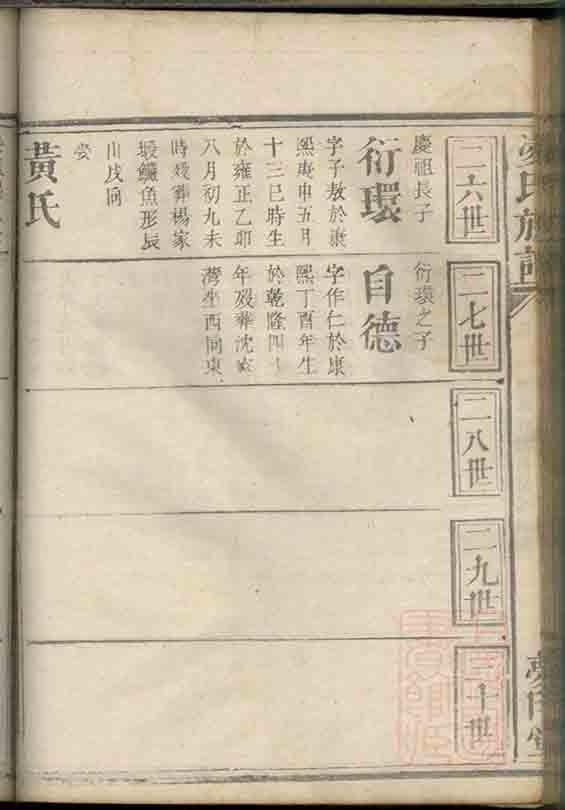 氏族譜
二六世
二七世
二八世
二九世
三十世
慶祖長子
衍環
字子敖於康
熙庚申五月
十三巳時生
於雍正乙卯
八月初九未
時歿葬楊家
塅鱺魚形辰
山戌向
娶
黃氏
衍環之子
自德
字作仁於康
熙丁酉年生
於乾隆四十
年歿葬沈家
灣坐西向東